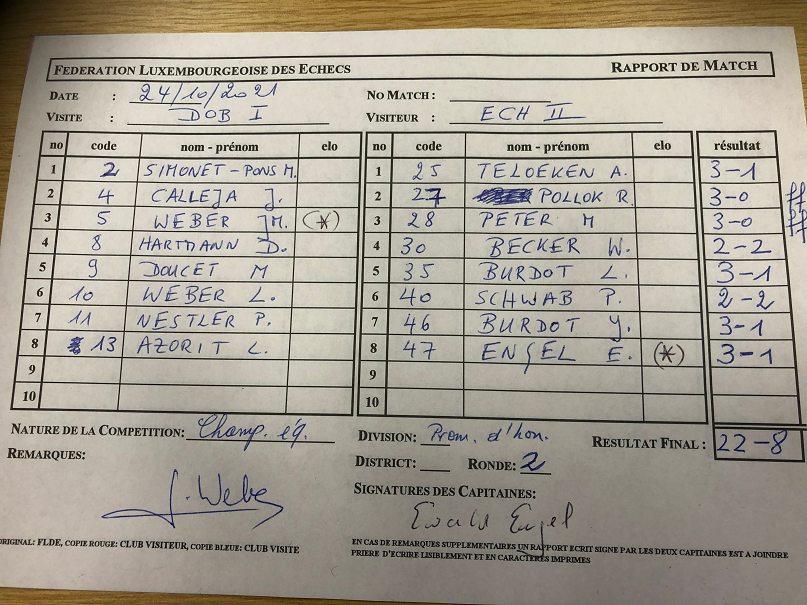 FEDERATION LUXEMBOURGEOISE DES ECHECS RAPPORT DE MATCH
DATE : 24/10/2021 NO MATCH :
VISITE : DOB I VISITEUR : ECH II
no code nom - prénom elo no code nom - prénom elo résultat
1 2 SIMONET-PONS M. 1 25 TELOEKEN A. 3-1
2 4 CALLEJA J. 2 27 POLLOK R. 3-0 ff
3 5 WEBER JM. (*) 3 28 PETER M 3-0 ff
4 8 HARTMANN D. 4 30 BECKER W. 2-2
5 9 DOUCET M 5 35 BURDOT L. 3-1
6 10 WEBER L. 6 40 SCHWAB P. 2-2
7 11 NESTLER P. 7 46 BURDOT J. 3-1
8 13 AZORIT L. 8 47 ENGEL E. (*) 3-1
9 9
10 10
NATURE DE LA COMPETITION: Champ. éq. DIVISION: Prom. d'hon. RESULTAT FINAL : 22-8
REMARQUES: DISTRICT: RONDE: 2
SIGNATURES DES CAPITAINES:
J. Weber
Ewald Engel
ORIGINAL: FLDE, COPIE ROUGE: CLUB VISITEUR, COPIE BLEUE: CLUB VISITE
EN CAS DE REMARQUES SUPPLEMENTAIRES UN RAPPORT ECRIT SIGNE PAR LES DEUX CAPITAINES EST A JOINDRE
PRIERE D'ECRIRE LISIBLEMENT ET EN CARACTERES IMPRIMES